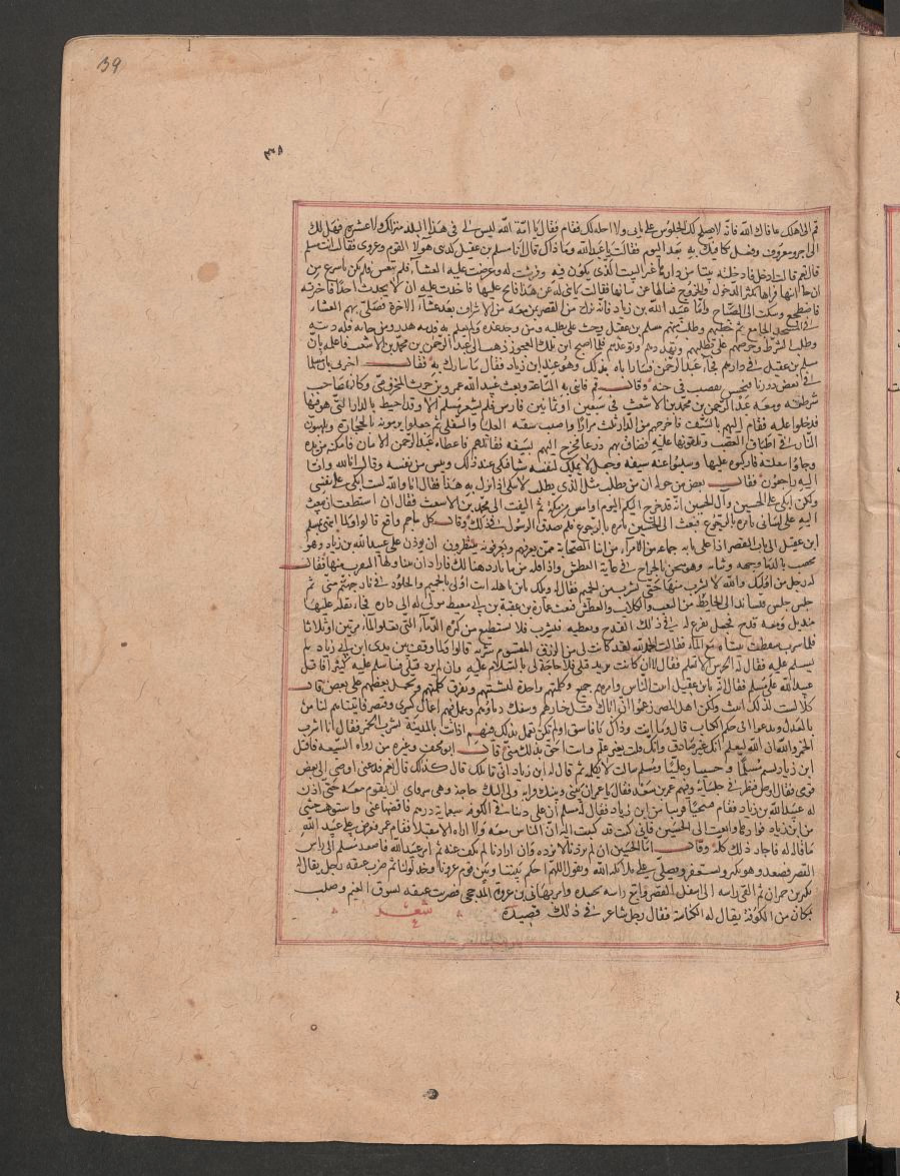 39
قم الى اهلك عافاك الله فانه لا يصلح لك الجلوس على بابى ولا احله لك فقام فقال يا امة الله ليس لى فى هذا البلد منزل ولا عشيرة فهل لك
الى اجر ومعروف وفعل نكافيك به بعد اليوم فقالت يا عبد الله وما ذاك قال انا مسلم بن عقيل كذبنى هولا القوم وغرونى فقالت انت مسلم
قال نعم قالت ادخل فادخلته بيتا من دارها غير البيت الذى يكون فيه وفرشت له وعرضت عليه العشا فلم يتعش فلم يكن باسرع من
ان جا ابنها فراها تكثر الدخول والخروج فسالها عن شانها فقالت يا بنى اله عن هذا فالح عليها فاخذت عليه ان لا يحدث احدا فاخبرته
فاضطجع وسكت الى الصباح واما عبيد الله بن زياد فانه نزل من القصر بمن معه من الاشراف بعد عشا الاخرة فصلى بهم العشا
فى المسجد الجامع ثم خطبهم وطلب منهم مسلم بن عقيل وحث على طلبه ومن وجد عنده ولم يعلم به فدمه هدر ومن جا به فله ديته
وطلب الشرط وحثهم على تطلبه وتهددهم وتوعدهم فلما اصبح ابن تلك العجوز ذهب الى عبد الرحمن بن محمد بن الاشعث فاعلمه بان
مسلم بن عقيل فى دارهم فجا عبد الرحمن فسار اباه بذلك وهو عند ابن زياد فقال ما سارك به فقال اخبرنى ان مسلما
فى بعض دورنا فنخس بقضيب فى جنبه وقال قم فاتنى به الساعة وبعث عبيد الله عمرو بن حريث المخزومى وكان صاحب
شرطته ومعه عبد الرحمن بن محمد بن الاشعث فى سبعين او ثمانين فارس فلم يشعر مسلم الا وقد احيط بالدار التى هو فيها
فدخلوا عليه فقام اليهم بالسيف فاخرجهم من الدار ثلاث مرارا واصيبت شفته العليا والسفلى ثم جعلوا يرمونه بالحجارة ويلهبون
النار فى اطناب القصب ويلقونها عليه فضاق بهم ذرعا فخرج اليهم بسيفه فقاتلهم فاعطاه عبد الرحمن الامان فامكنه من يده
وجاوا ببغلة فاركبوه عليها وسلبوا عنه سيفه وجعل لا يملك لنفسه شيا فبكى عند ذلك ويس من نفسه وقال انا لله وانا
اليه راجعون فقال بعض من حوله ان من يطلب مثل الذى يطلب لا يبكى اذا نزل به هذا فقال انا والله لست ابكى على نفسى
ولكن ابكى على الحسين وآل الحسين انه قد خرج اليكم اليوم او امس من مكة ثم التفت الى محمد بن الاشعث فقال ان استطعت ان تبعث
اليه على لسانى تامره بالرجوع فبعث الى الحسين يامره بالرجوع فلم يصدق الرسول فى ذلك وقال كل ما حم واقع قالوا ولما انتهى مسلم
ابن عقيل الى باب القصر اذا على بابه جماعة من الامراء من ابنا الصحابة ممن يعرفهم ويعرفونه ينتظرون ان يوذن على عبيد الله بن زياد وهو
مخضب بالدما وجهه وثيابه وهو مثخن بالجراح فى غاية العطش واذا قلة من ما بارد هنالك فاراد ان يتناولها ليشرب منها فقال
له رجل من اوليك والله لا تشرب منها حتى تشرب من الحميم فقال له ويلك يا بن باهلة انت اولى بالحميم والخلود فى نار جهنم منى ثم
جلس فتساند الى الحايط من التعب والكلال والعطش فبعث عمارة بن عقبة بن ابى معيط مولى له الى داره فجاء بقلة عليها
منديل ومعه قدح فجعل يفرغ له فى ذلك القدح ويعطيه فيشرب فلا يستطيع من كثرة الدماء التى تعلوا الماء مرتين او ثلاثا
فلما شرب سقطت ثناياه مع الماء فقال الحمد لله لقد كانت لى من الرزق المقسوم شربة قالوا ولما وقف بين يدى ابن زياد لم
يسلم عليه فقال له الحرس الا تسلم فقال لا ان كان يريد قتلى فلا حاجة لى بالسلام عليه وان لم يرد قتلى فساسلم عليه كثيرا فاقبل
عبيد الله على مسلم فقال ايه يا بن عقيل اتيت الناس وامرهم جميع وكلمتهم واحدة لتشتتهم وتفرق كلمتهم وتحمل بعضهم على بعض قال
كلا لست لذلك اتيت ولكن اهل المصر زعموا ان اباك قتل خيارهم وسفك دماهم وعمل فيهم اعمال كسرى وقيصر فاتيناهم لنامر
بالعدل وندعوا الى حكم الكتاب قال وما انت وذاك يا فاسق او لم نكن نعمل بذلك فيهم اذ انت بالمدينة تشرب الخمر فقال انا اشرب
الخمر والله ان الله ليعلم انك غير صادق وانك قلت بغير علم وانت احق بذلك منى قال ابو مخنف وغيره من رواة الشيعة فاقبل
ابن زياد يشتم مسلما وحسينا وعليا ومسلم ساكت لا يكلمه ثم قال له ابن زياد انى قاتلك قال كذلك قال نعم قال فدعنى اوصى الى بعض
قومى فقال اوص فنظر فى جلسايه وفيهم عمر بن سعد فقال يا عمر ان بينى وبينك قرابة ولى اليك حاجة وهى سر فابى ان يقوم معه حتى اذن
له عبيد الله بن زياد فقام فتنحيا قريبا من ابن زياد فقال له مسلم ان على دينا فى الكوفة سبعماية درهم فاقضها عنى واستوهب جثتى
من ابن زياد فوارها وابعث الى الحسين فانى كنت قد كتبت اليه ان الناس معه ولا اراه الا مقبلا فقام عمر فعرض على عبيد الله
ما قال له فاجاز ذلك كله وقال اما الحسين ان لم يردنا لا نرده وان ارادنا لم نكف عنه ثم امر عبيد الله فاصعد مسلم الى راس
القصر فصعد وهو يكبر ويستغفر ويصلى على ملائكة الله ويقول اللهم احكم بيننا وبين قوم غرونا وخذلونا ثم ضرب عنقه رجل يقال له
بكير بن حمران ثم القى راسه الى اسفل القصر واتبع راسه بجسده وامر بهانى بن عروة المذحجى فضربت عنقه بسوق الغنم وصلب
بمكان من الكوفة يقال له الكناسة فقال رجل شاعر فى ذلك قصيدة شعر